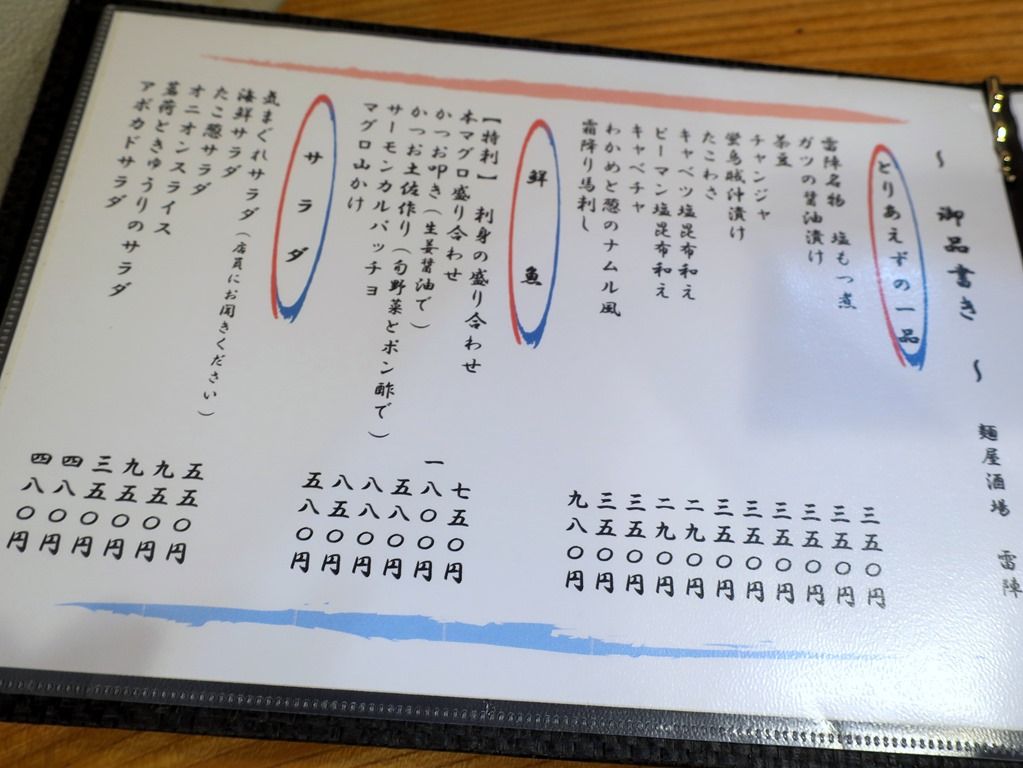 〜 御品書き 〜 麺屋酒場 雷陣
とりあえずの一品
雷陣名物 塩もつ煮 三五〇円
ガツの醤油漬け 三五〇円
茶豆 三五〇円
チャンジャ 三五〇円
蛍烏賊沖漬け 三五〇円
たこわさ 三五〇円
キャベツ塩昆布和え 二九〇円
ピーマン塩昆布和え 二九〇円
キャベチャ 三五〇円
わかめと葱のナムル風 三五〇円
霜降り馬刺し 九八〇円
鮮魚
【特刺】 刺身の盛り合わせ 七五〇円
本マグロ盛り合わせ 一八〇〇円
かつお叩き（生姜醤油で） 五八〇円
かつお土佐作り（旬野菜とポン酢で） 八八〇円
サーモンカルパッチョ 八五〇円
マグロ山かけ 五八〇円
サラダ
気まぐれサラダ（店員にお聞きください） 五五〇円
海鮮サラダ 九五〇円
たこ葱サラダ 九五〇円
オニオンスライス 三五〇円
茗荷ときゅうりのサラダ 四八〇円
アボカドサラダ 四八〇円